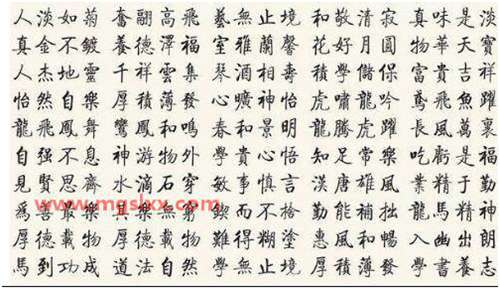 人淡如菊 奮翮高飛 藝無止境 和敬清寂 真味是淡
真金不鍍 養德澤福 室雅蘭馨 花好月圓 物華天寶
人杰地靈 千祥雲集 琴酒相壽 學儲保 富貴吉祥
怡然自樂 厚積薄發 心曠神怡 虎嘯龍吟 鳶飛魚躍
龍飛鳳舞 鸞鳳和鳴 春和景明 龍騰虎躍 長風萬裏
自强不息 神游物外 學貴心悟 知足常樂 吃虧是福
見賢思齊 水滴石穿 敏事慎言 漢唐雄風 業精于勤
爲善最樂 其樂無窮 鍥而不 勤能補拙 龍馬精神
厚德載物 厚德載物 難得糊塗 惠風和暢 入幽出朗
馬到功成 道法自然 學無止境 厚積薄發 學書養志